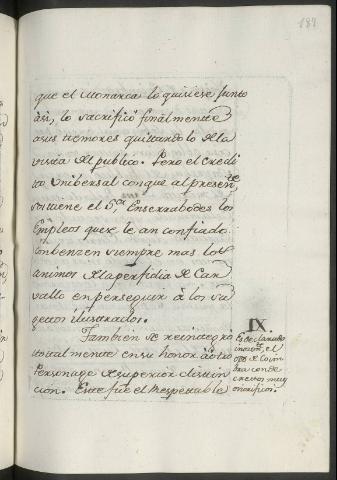 187
que el Monarca lo quisiese junto
asi, lo sacrificó finalmente
a sus temores quittandolo de la
vista del publico. Pero el credi
to Unibersal con que al presente
sostiene el Sr. Enserrabodes los
Empleos que se le an confiado
combenzen siempre mas los
animos de la perfidia de Car
vallo en perseguir à los su
gettos ilustrados.
Tambien se reintegró
totalmente en su honor à otro
Personage de superior distin
cion. Este fue el Respettable
IX.
Es declarado
inocte, el
obpo de Coim
bra con de
cretos muy
onorificos.